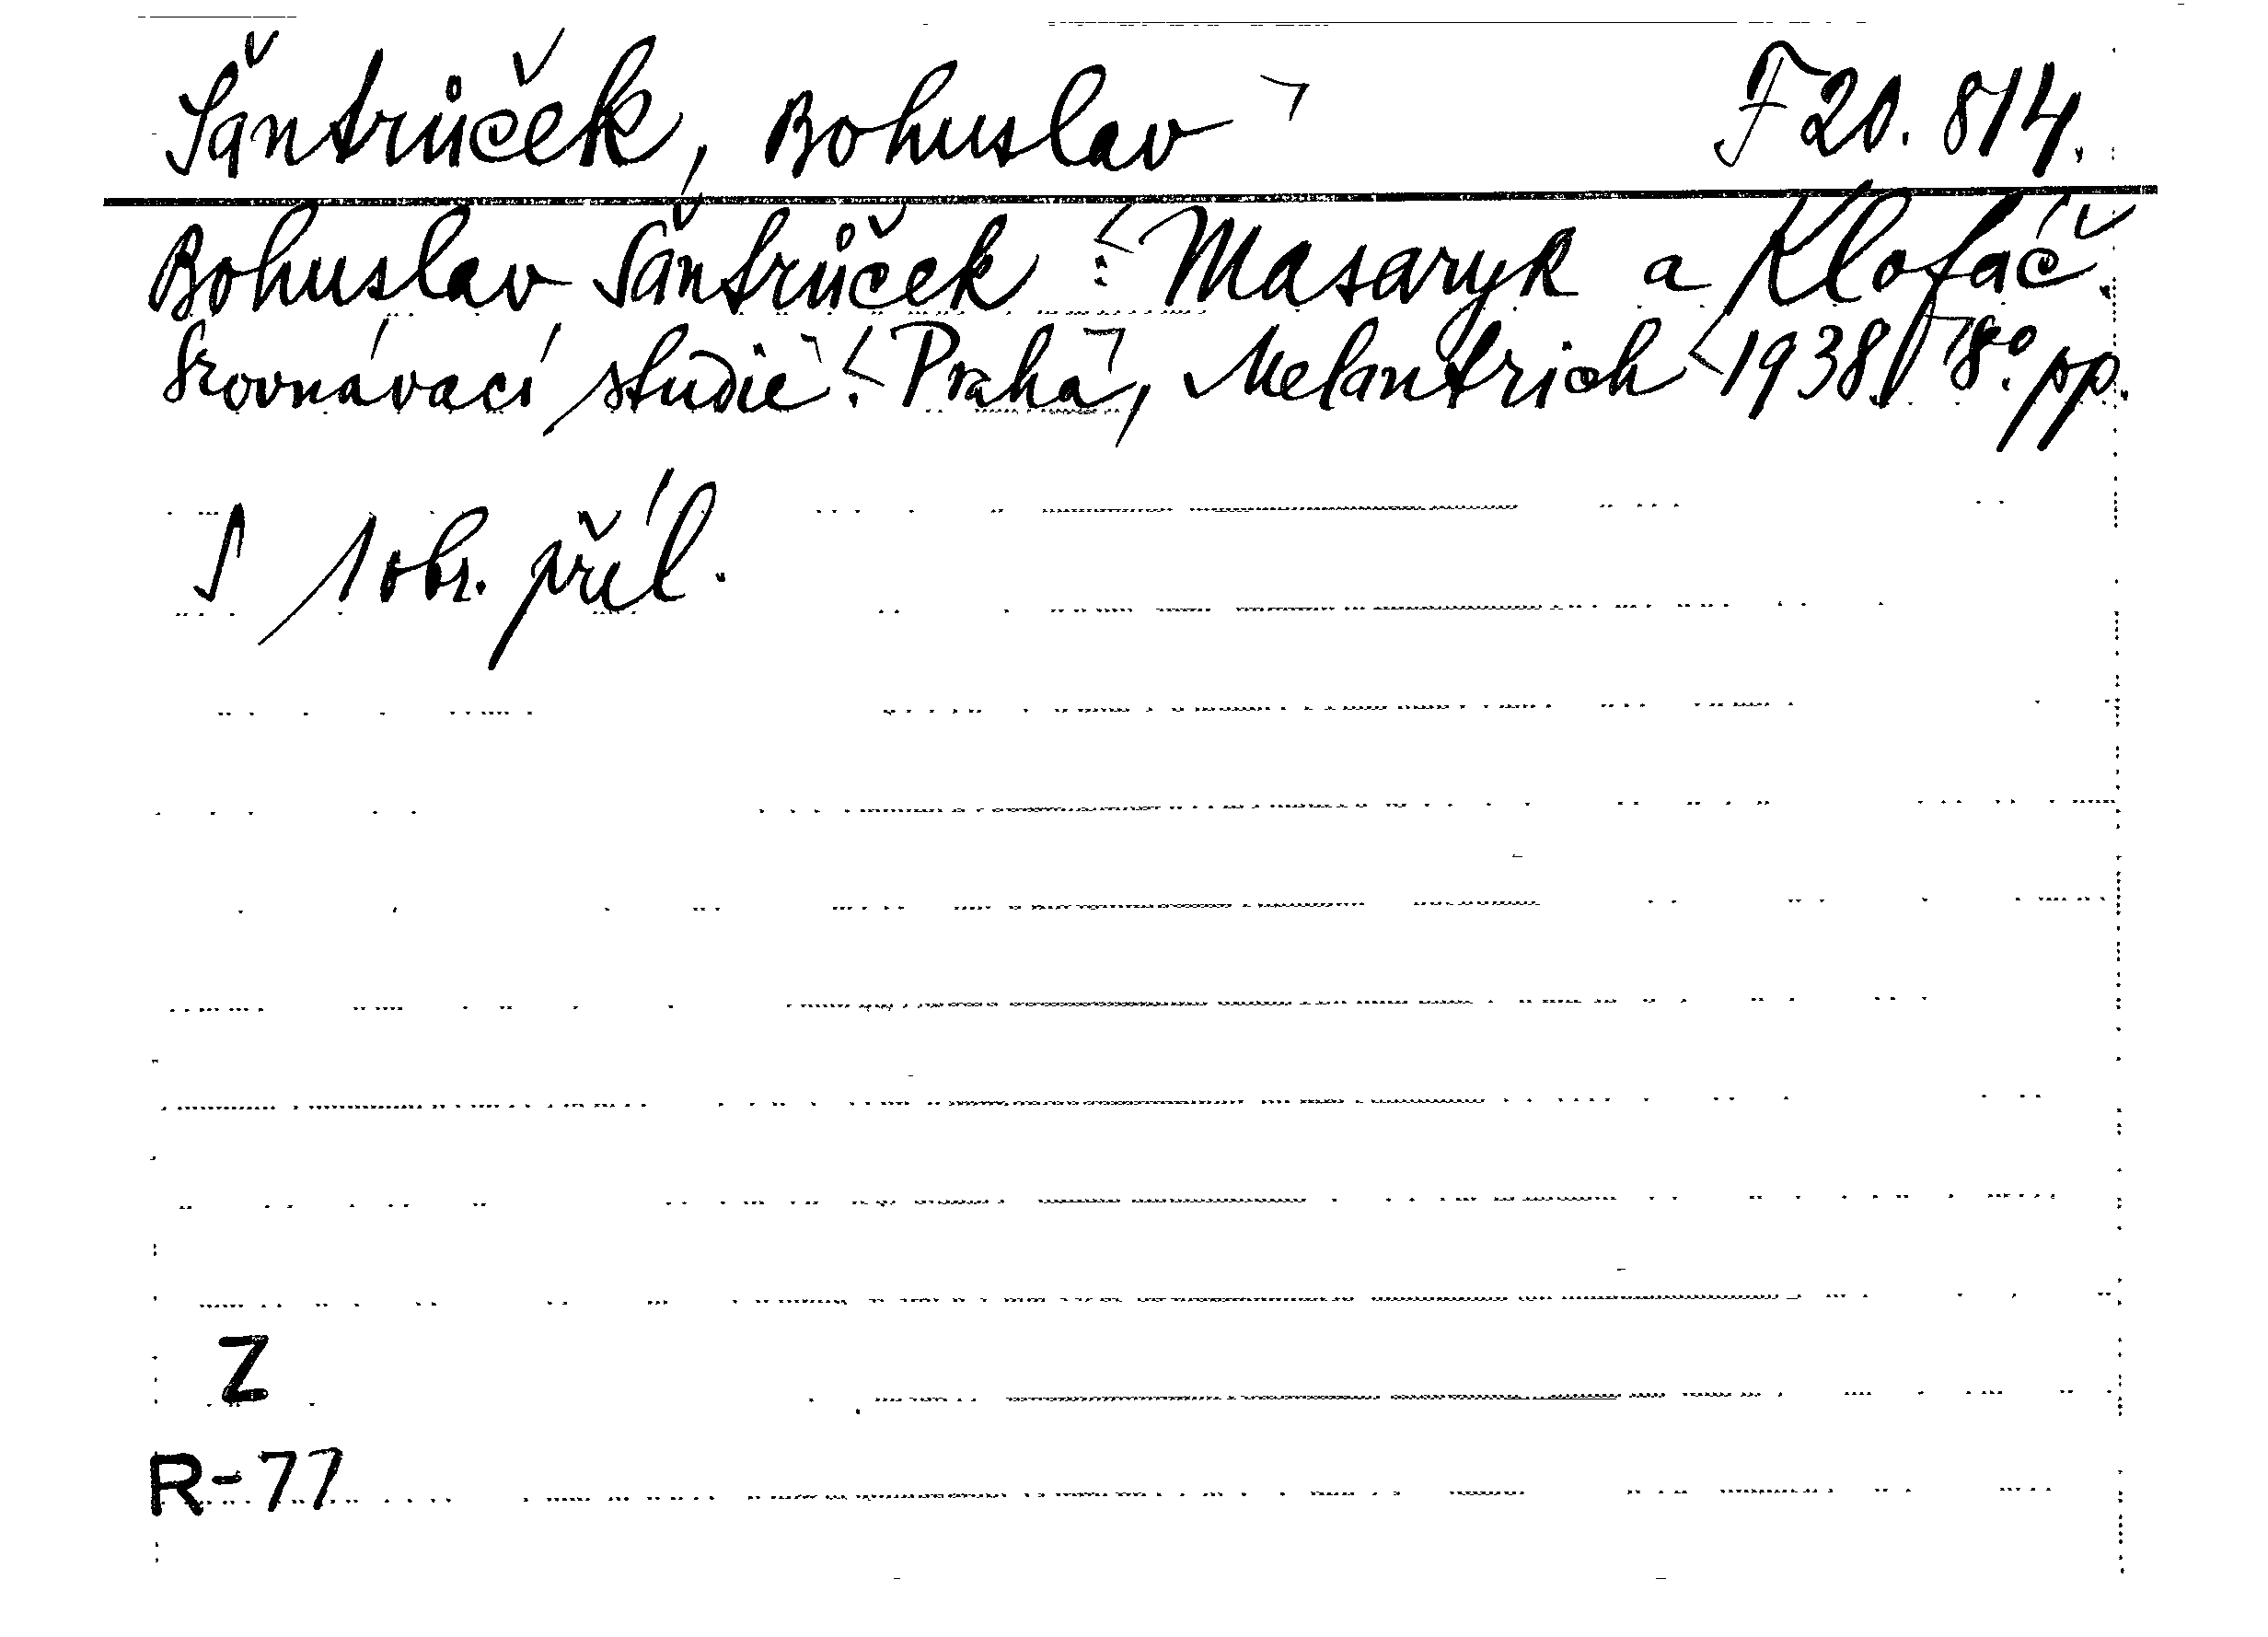 Šantrůček, Bohuslav F 20.814.
Bohuslav Šantrůček: Masaryk a Klofáč.
Srovnávací studie. Praha, Melantrich 1938. 8°. pp.
S 1 obr. příl.
Z
R-77